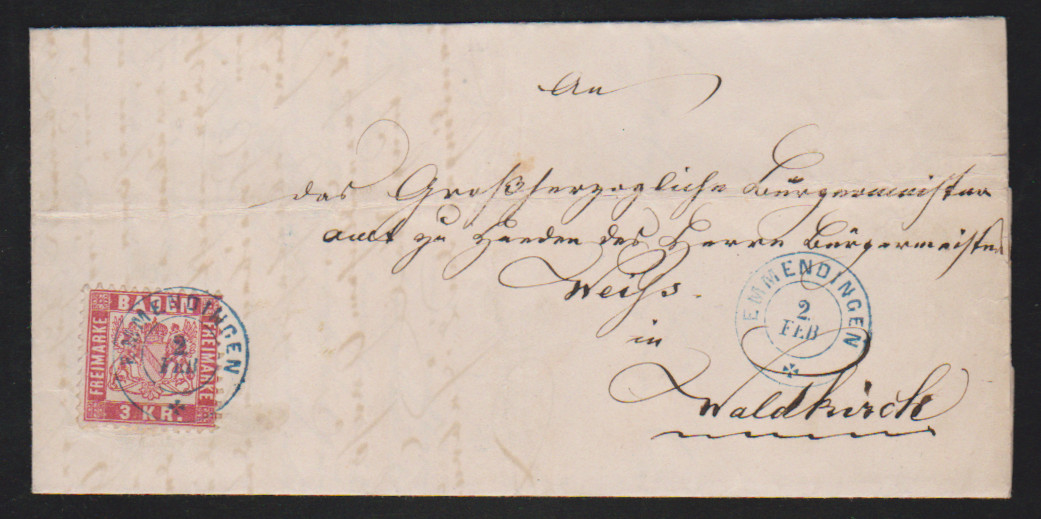 An
das Großherzogliche Bürgermeister
amt zu Handen des Herrn Bürgermeister
Weiß.
in
Waldkirch
EMMENDINGEN
2
FEB
BADEN
FREIMARKE
FREIMARKE
3 KR.
EMMENDINGEN
2
FEB